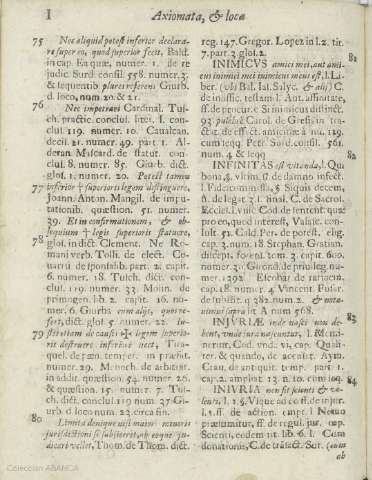 I Axiomata, & loca
75 Nec aliquid potest inferior declara-
re super eo, quod superior fecit, Bald.
in cap. Ea quæ, numer. 1. de re
judic. Surd. consil. 558. numer. 3.
& sequentib. plures referens Giurb.
d. loco, num. 20. & 21.
76 Nec imperari Cardinal. Tus-
ch. practic. conclus. litet. I. con-
clus. 119. numer. 10. Cavalcan.
decis. 21. numer. 49. part. 1. Al-
deran. Mascard. de statut. con-
clus. 8. numer. 85. Giurb. dict.
glos. 1. numer. 20. Potest tamen
77 inferior † superioris legem distinguere,
Joann. Anton. Mangil. de impu-
tationib. quæstion. 51. numer.
39. Et in confirmationem, & ob-
sequium † legis superioris statuere,
78 glos. in dict. Clement. Ne Ro-
mani verb. Tolli. de elect. Co-
varru. de sponsalib. part. 2. capit.
6. numer. 18. Tusch. dict. con-
clus. 119. numer. 33. Molin. de
primogen. lib. 2. capit. 16. nu-
mer. 6. Giurb. cum alijs, quos re-
fert, dict. glos. 5. numer. 22. Ju-
79 stitutione de causis † legem superio-
ris destruere inferior nicit, Tira-
quel. de pœn. temper. in præfat.
numer. 29. Menoch. de arbitrar.
in addit. quæstion. 54. numer. 26.
& quæstion. 15. numer. 7. Tus-
ch. dict. conclus. 119. num. 37. Giur-
b. d. loco num. 22. circa fin.
80 Limita denique nisi maior minoris
jurisdictioni se subijcerit, ab eoque ju-
dicari vellet, Thom. de Thom. dict.
reg. 147. Gregor. Lopez in l. 2. tit.
7. part. 3. glos. 2.
81 INIMICUS amici mei, aut ami-
cus inimici mei inimicus meus est, l. Li-
ber. (ubi Bal. Ial. Salyc. & alij) C.
de inoffic. testam. l. Aut assinitate,
ff. de procur. c. Si inimicus distinct.
93. publicæ Carol. de Grassis in tra-
ctat. de effect. amicitiæ à nu. 129.
cum seqq. Petr. Surd. consil. 561.
num. 4. & seqq.
82 INFINITAS est vitanda, l. Qui
bona, §. ultim. ff. de damno infect.
l. Fideicommissa, §. Si quis decem,
ff. de legat. 3. l. final. C. de Sacros.
Eccles. l. unic. Cod. de sentent. quæ
pro eo, quod interest, Valasc. con-
sult. 51. Cald. Per. de potest. elig.
cap. 3. num. 18. Stephan. Gratian.
discept. forens. tom. 3. capit. 600.
numer. 39. Girond. de privileg. nu-
mer. 1292. Escobar. de ratiocin.
cap. 18. numer. 4. Vincent. Fusar.
de substit. q. 282. num. 2. & nota-
vimus supra lit. A num 568.
83 INJURIÆ inde nasci non de-
bent, unde jura nascuntur, l. Memi-
nerint, Cod. unde vi, cap. Quali-
ter, & quando, de accusat. Aym.
Crau. de antiquit. temp. part. 1.
cap. 2. amplias 13. n. 10. cum seq.
84 INIURIA non fit scienti & vo-
lenti, l. 1. §. Usque adeo ff. de injur.
l. 1. ff. de action. empt. l. Nemo
præsumitur, ff. de regul. jur. cap.
Scienti, eodem tit. lib. 6. l. Cum
donationis, C. de transact. Sur. (cum
ab
Colección ABANCA